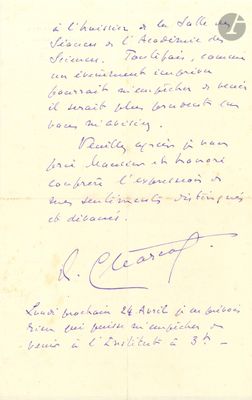 à l'huissier de la Salle des
Séances de l'Académie des
Sciences. Toutefois, comme
un événement imprévu
pourrait m'empêcher de venir
il serait plus prudent que
vous m'avisiez.
Veuillez agréer je vous
prie Monsieur et honoré
confrère l'expression de
mes sentiments distingués
et dévoués.
Charcot
Lundi prochain 24 Avril je ne prévois
rien qui puisse m'empêcher de
venir à l'Institut à 3h —